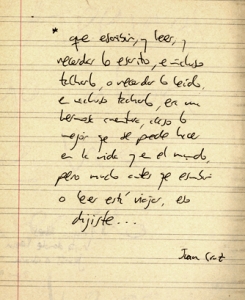 * que escribir, y leer, y
recordar lo escrito, e incluso
tacharlo, o recordar lo leído,
e incluso tacharlo, era un
hermoso
mejor que se puede hacer
en la vida y en el mundo,
pero mucho antes que escribir
o leer está viajar, eso
dijiste...
Juan Cruz